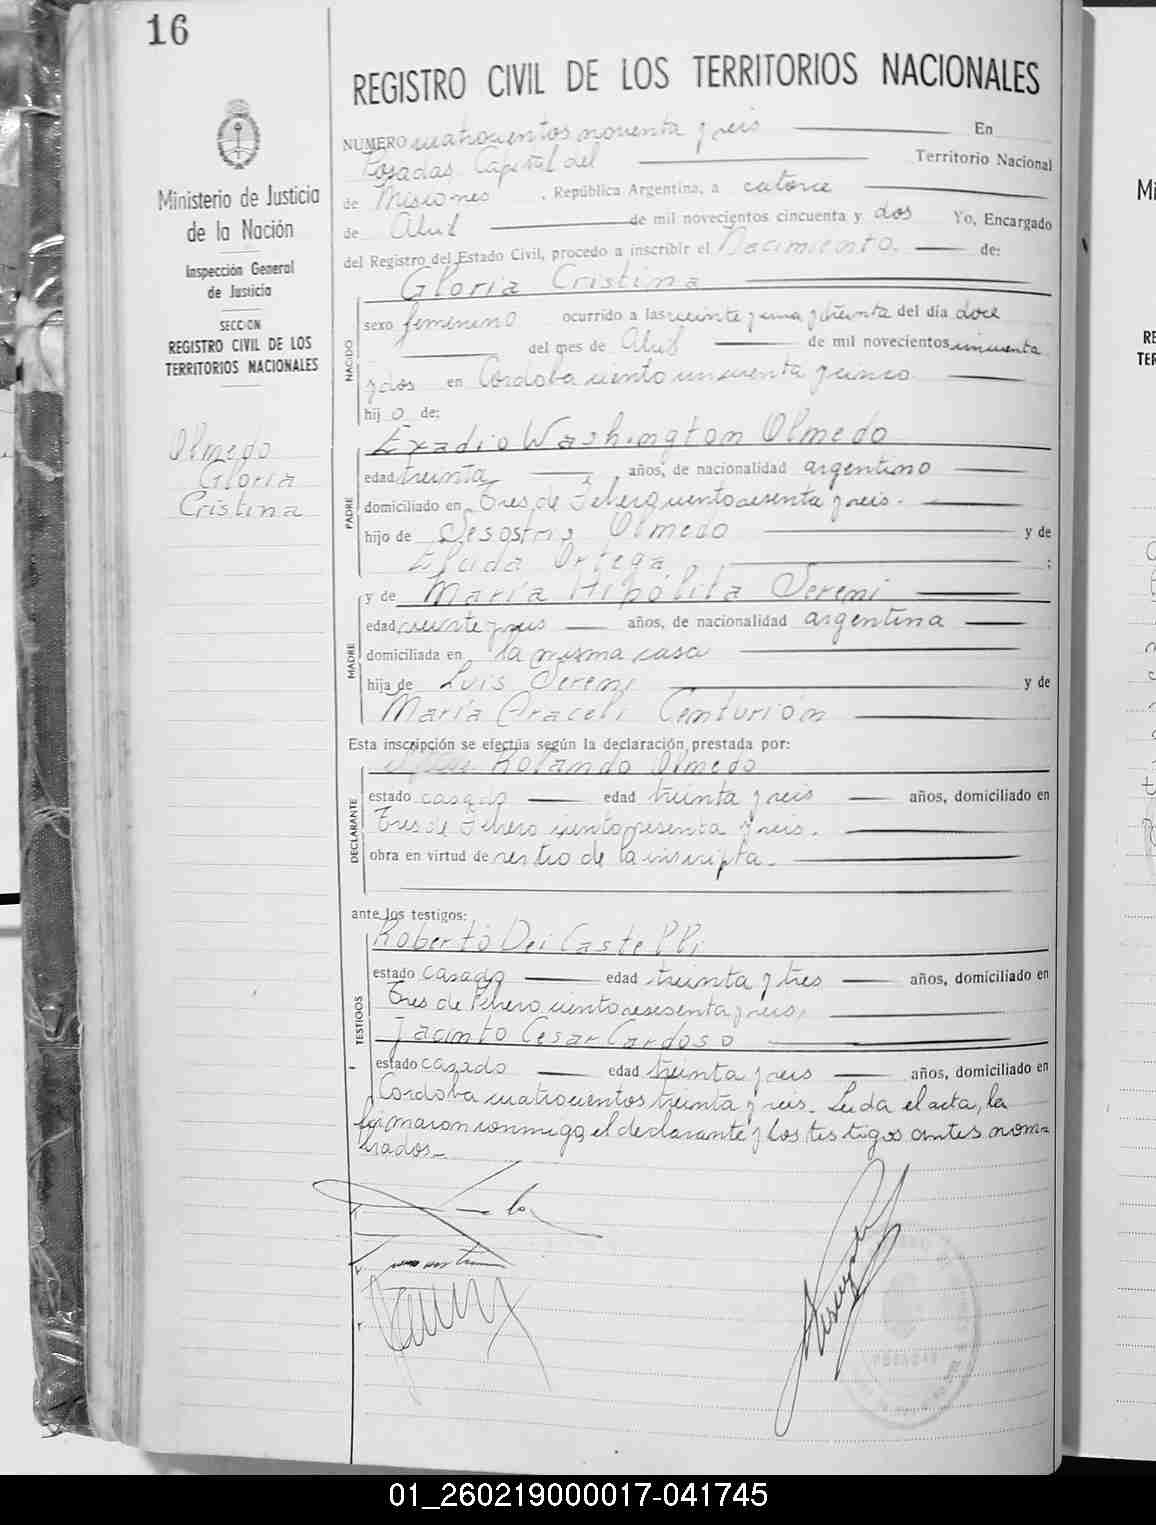 16
REGISTRO CIVIL DE LOS TERRITORIOS NACIONALES
Ministerio de Justicia
de la Nación
Inspección General
de Justicia
SECCION
REGISTRO CIVIL DE LOS
TERRITORIOS NACIONALES
Olmedo
Gloria
Cristina
NUMERO cuatrocientos noventa y seis En
Posadas Capital del Territorio Nacional
de Misiones, República Argentina, a catorce
de Abril de mil novecientos cincuenta y dos Yo, Encargado
del Registro del Estado Civil, procedo a inscribir el Nacimiento. de:
Gloria Cristina
NACIDO
sexo femenino ocurrido a las veinte y una y treinta del día doce
del mes de Abril de mil novecientos cincuenta
y dos en Cordoba ciento cincuenta y cinco
hij o de:
Washington Olmedo
PADRE
edad treinta años, de nacionalidad argentino
domiciliado en Tres de Febrero ciento sesenta y seis.
hijo de Sesostris Olmedo y de
Ortega ;
MADRE
y de María Hipólita Sereni
edad veinte y seis años, de nacionalidad argentina
domiciliada en la misma casa
hija de Luis Sereni y de
María Araceli Centurión
Esta inscripción se efectúa según la declaración prestada por:
Rolando Olmedo
DECLARANTE
estado casado edad treinta y seis años, domiciliado en
Tres de Febrero ciento sesenta y seis.
obra en virtud de ser tio de la inscripta.
ante los testigos:
TESTIGOS
Roberto Dei Castelli
estado casado edad treinta y tres años, domiciliado en
Tres de Febrero ciento sesenta y seis,
Jacinto Cesar Cardoso
estado casado edad treinta y seis años, domiciliado en
Cordoba cuatrocientos treinta y seis. Leida el acta, la
firmaron conmigo, el declarante y los testigos antes nom-
brados.
POSADAS
Mi
RE
TER
01_260219000017-041745